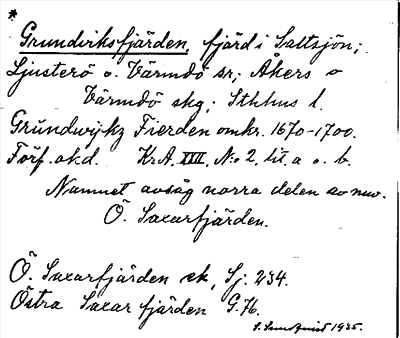 *
Grundviksfjärden, fjärd i Saltsjön;
Ljusterö o. Värmdö sr; Åkers o
Värmdö skg; Sthlms l.
Grundwijkz Fierden omkr. 1670-1700.
Förf. okd. Kr.A. XVII, N:o 2, lit. a o. b.
Namnet avsåg norra delen av nuv.
Ö. Saxarfjärden.
Ö. Saxarfjärden ek, Sj. 234.
Östra Saxar fjärden G.K.
1935.